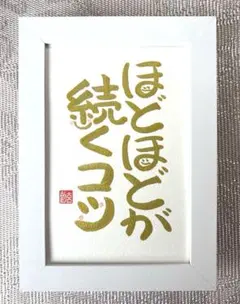 ほどほどが
続くコツ